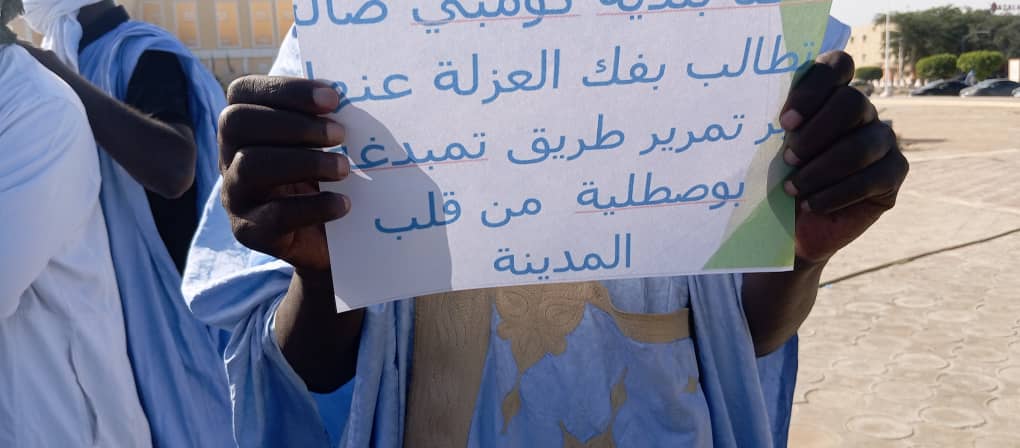 بلدية كومبي صالح
تطالب بفك العزلة عنها
عبر تمرير طريق تمبدغه
بوصطلية من قلب
المدينة